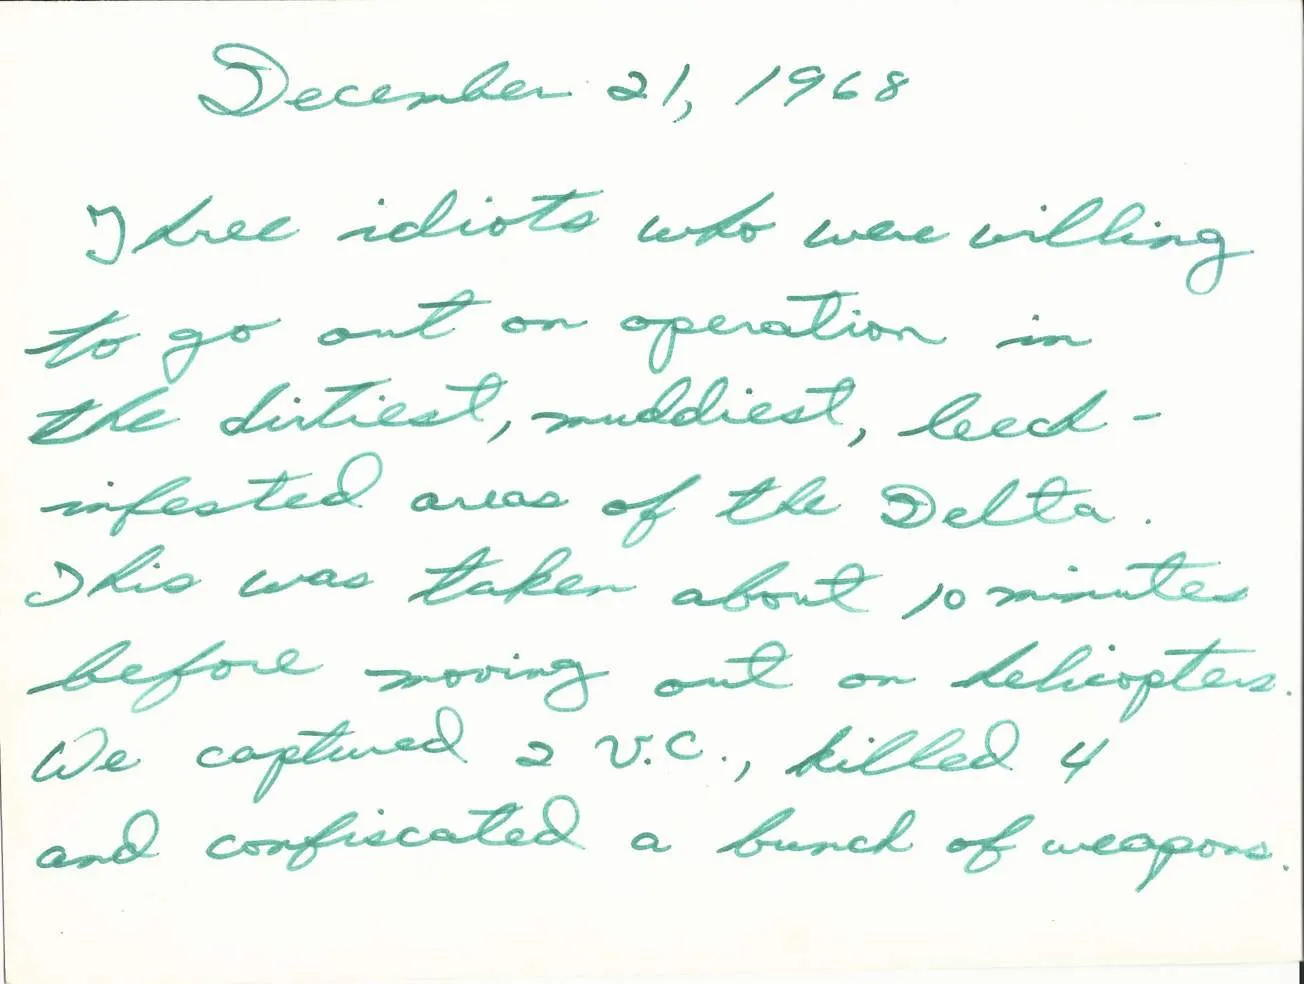 December 21, 1968
Three idiots who were willing
to go out on operation in
the dirtiest, muddiest, leech-
infested areas of the Delta.
This was taken about 10 minutes
before moving out on helicopters.
We captured 2 V.C., killed 4
and confiscated a bunch of weapons.